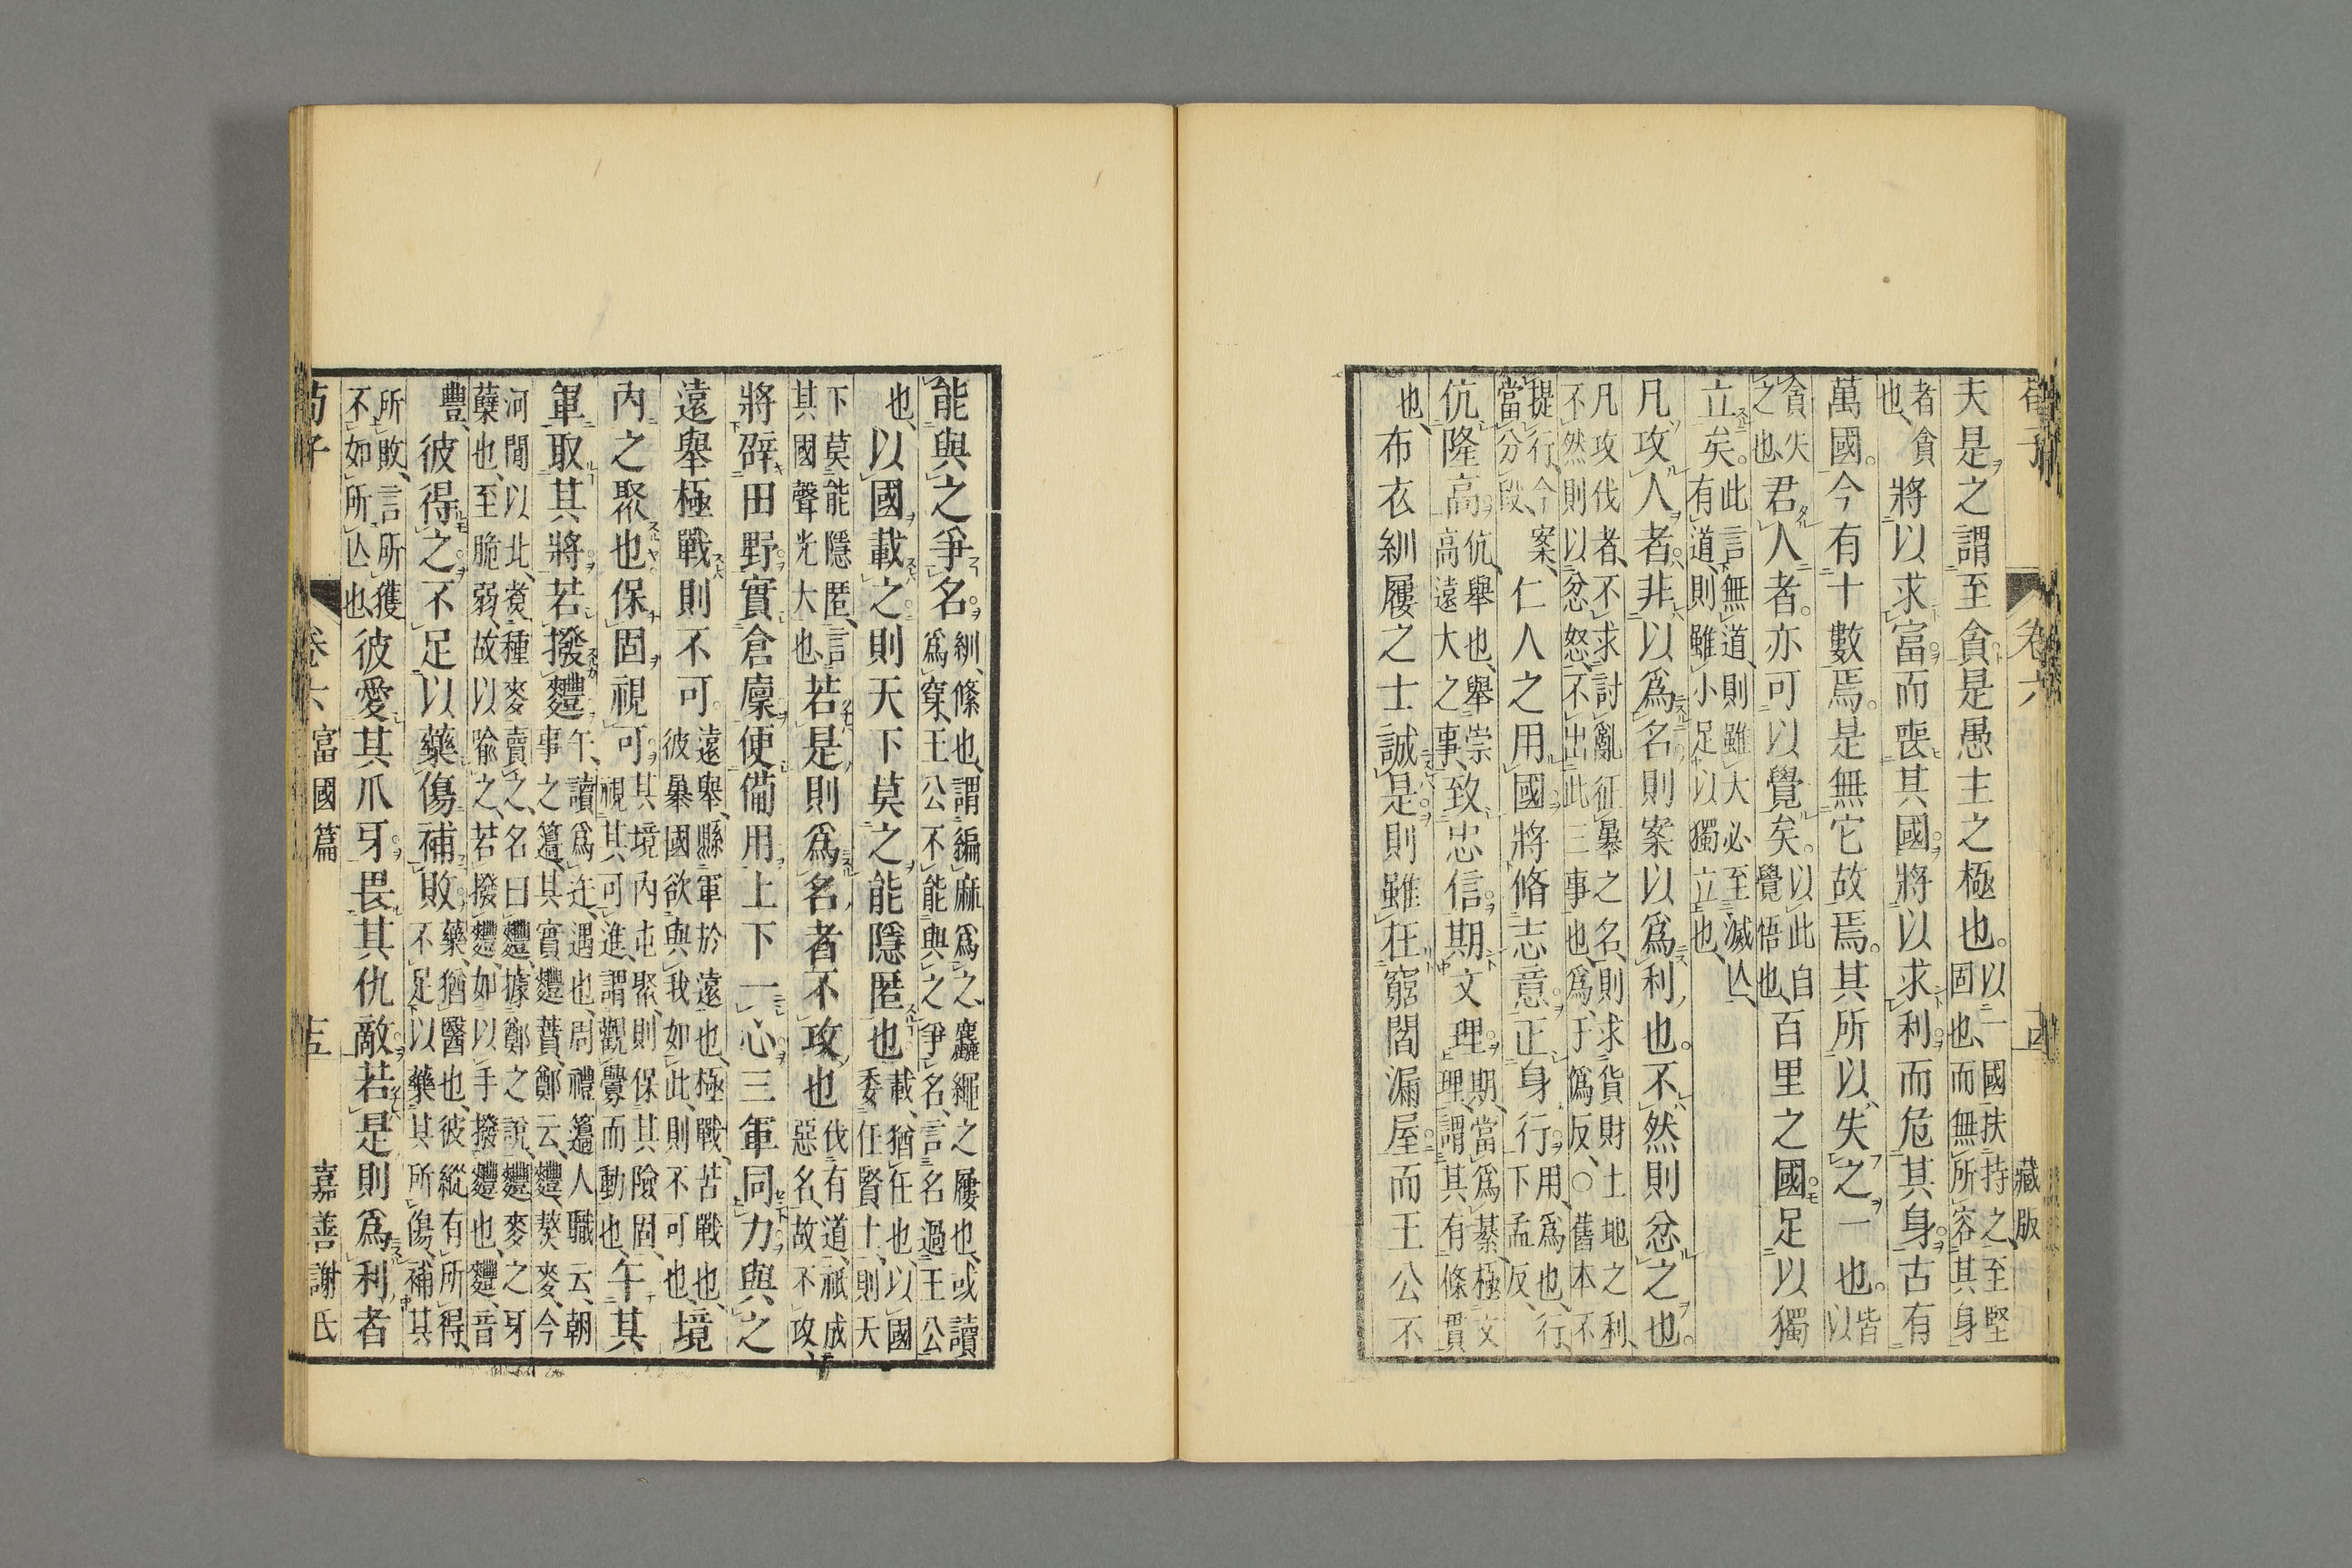 荀子 卷六 藏版
夫是之謂至貪是愚主之極也。以一國扶持之至堅固也、而無所容其身
者貪也、將以求富而喪其國將以求利而危其身古有
萬國。今有十數焉。是無它故焉。其所以失之一也。皆以
貪失之也君人者。亦可以覺矣。以此自覺悟也、百里之國足以獨
立矣。此言無道、則雖大必至滅亾、有道、則雖小足以獨立也、
凡攻人者。非以爲名則案以爲利也。不然則忿之也。
凡攻伐者、不求討亂征暴之名、則求貨財土地之利、不然則以忿怒、不出此三事也、爲、于僞反、○舊本不
提行、今案、當分段、仁人之用國將脩志意正身行用、爲也、行、下孟反、
伉隆高伉、舉也、舉崇高遠大之事、致忠信期文理期、當爲綦、極文理、謂其有條貫
也、布衣紃屨之士誠是則雖在窮閻漏屋而王公不
能與之爭名紃、絛也、謂編麻爲之、麤繩之屨也、或讀爲穿、王公不能與之爭名、言名過王公
也、以國載之則天下莫之能隱匿也載、猶任也、以國委任賢士、則天
下莫能隱匿、言其國聲光大也、若是則爲名者不攻也伐有道、祗成惡名、故不攻、
將辟田野實倉廩便備用上下一心三軍同力與之
遠舉極戰則不可。遠舉、縣軍於遠也、極戰、苦戰也、彼暴國欲與我如此、則不可也、境
內之聚也保固視可其境內屯聚、則保其險固、視其可進、謂觀釁而動也、午其
軍取其將若撥麷午、讀爲迕、遇也、周禮籩人職云、朝事之籩、其實麷蕡、鄭云、麷、熬麥、今
河閒以北、煑種麥賣之、名曰麷、據鄭之說、麷麥之牙蘖也、至脆弱、故以喩之、若撥麷、如以手撥麷也、麷、音
豐、彼得之不足以藥傷補敗藥、猶醫也、彼縱有所得、不足以藥其所傷、補其
所敗、言所獲不如所亾也彼愛其爪牙畏其仇敵若是則爲利者
荀子 卷六 富國篇 十五 嘉善謝氏